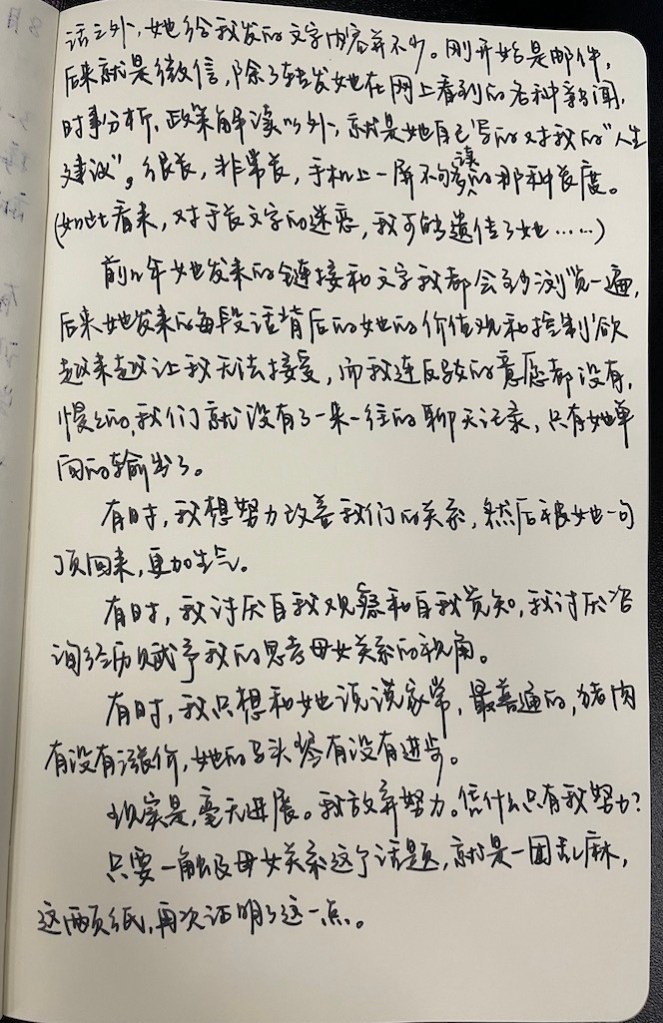 话之外，她给我发的文字内容并不少。刚开始是邮件，
后来就是微信，除了转发她在网上看到的各种新闻，
时事分析、政策解读以外，就是她自己写的对我的“人生
建议”。很长，非常长，手机上一屏不够读的那种长度。
（如此看来，对于长文字的迷恋，我可能遗传了她……）
前几年她发来的链接和文字我都会至少浏览一遍，
后来她发来的每段话背后的她的价值观和控制欲
越来越让我无法接受，而我连反驳的意愿都没有，
慢慢的，我们就没有了一来一往的聊天记录，只有她单
向的输出了。
有时，我想努力改善我们的关系，然后被她一句
顶回来，更加生气。
有时，我讨厌自我观察和自我觉知，我讨厌咨
询经历赋予我的思考母女关系的视角。
有时，我只想和她说说家常，最普通的，猪肉
有没有涨价，她的马头琴有没有进步。
现实是，毫无进展。我放弃努力。凭什么只有我努力？
只要一触及母女关系这个话题，就是一团乱麻，
这两页纸，再次证明了这一点。